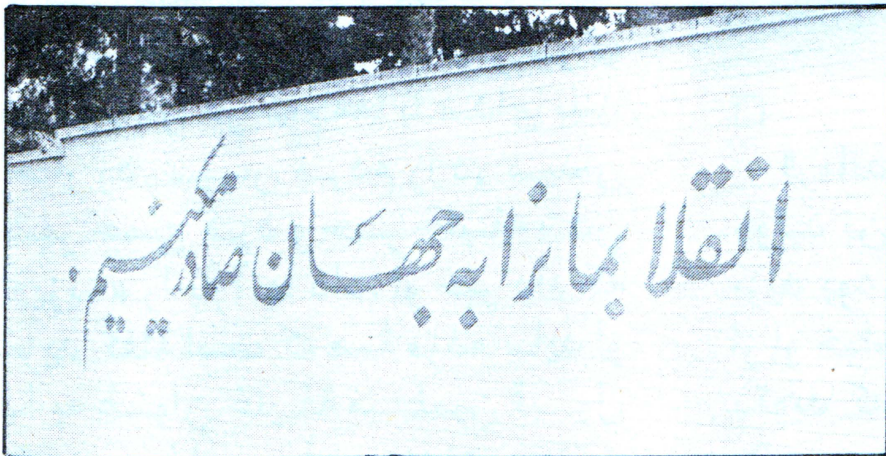 انقلابمانرا به جهان صادر میکنیم.